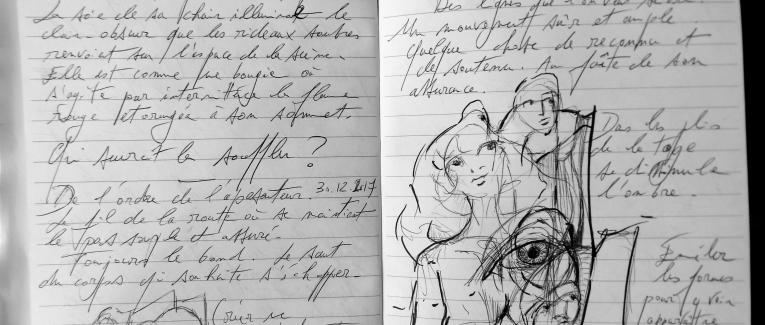 La soie de sa chair illuminait le
clair-obscur que les rideaux sombres
renvoient sur l'espace de la scène.
Elle est comme une bougie où
s'agite par intermittence la flamme
rouge et orangée à son sommet.
Qui saurait la souffler ?
De l'ordre de l'apesanteur. 30.12.2017
Le fil de la route où se maintient
le pas souple et assuré.
Toujours le bond. Le saut
du corps qui souhaite s'échapper.
Des lignes que l'on
Un mouvement sûr et ample.
Quelque chose de reconnu et
de soutenu. Au faîte de son
assurance.
Dans les plis
de la toge
se dissimula
l'ombre
les formes
pour y voir
apparaître